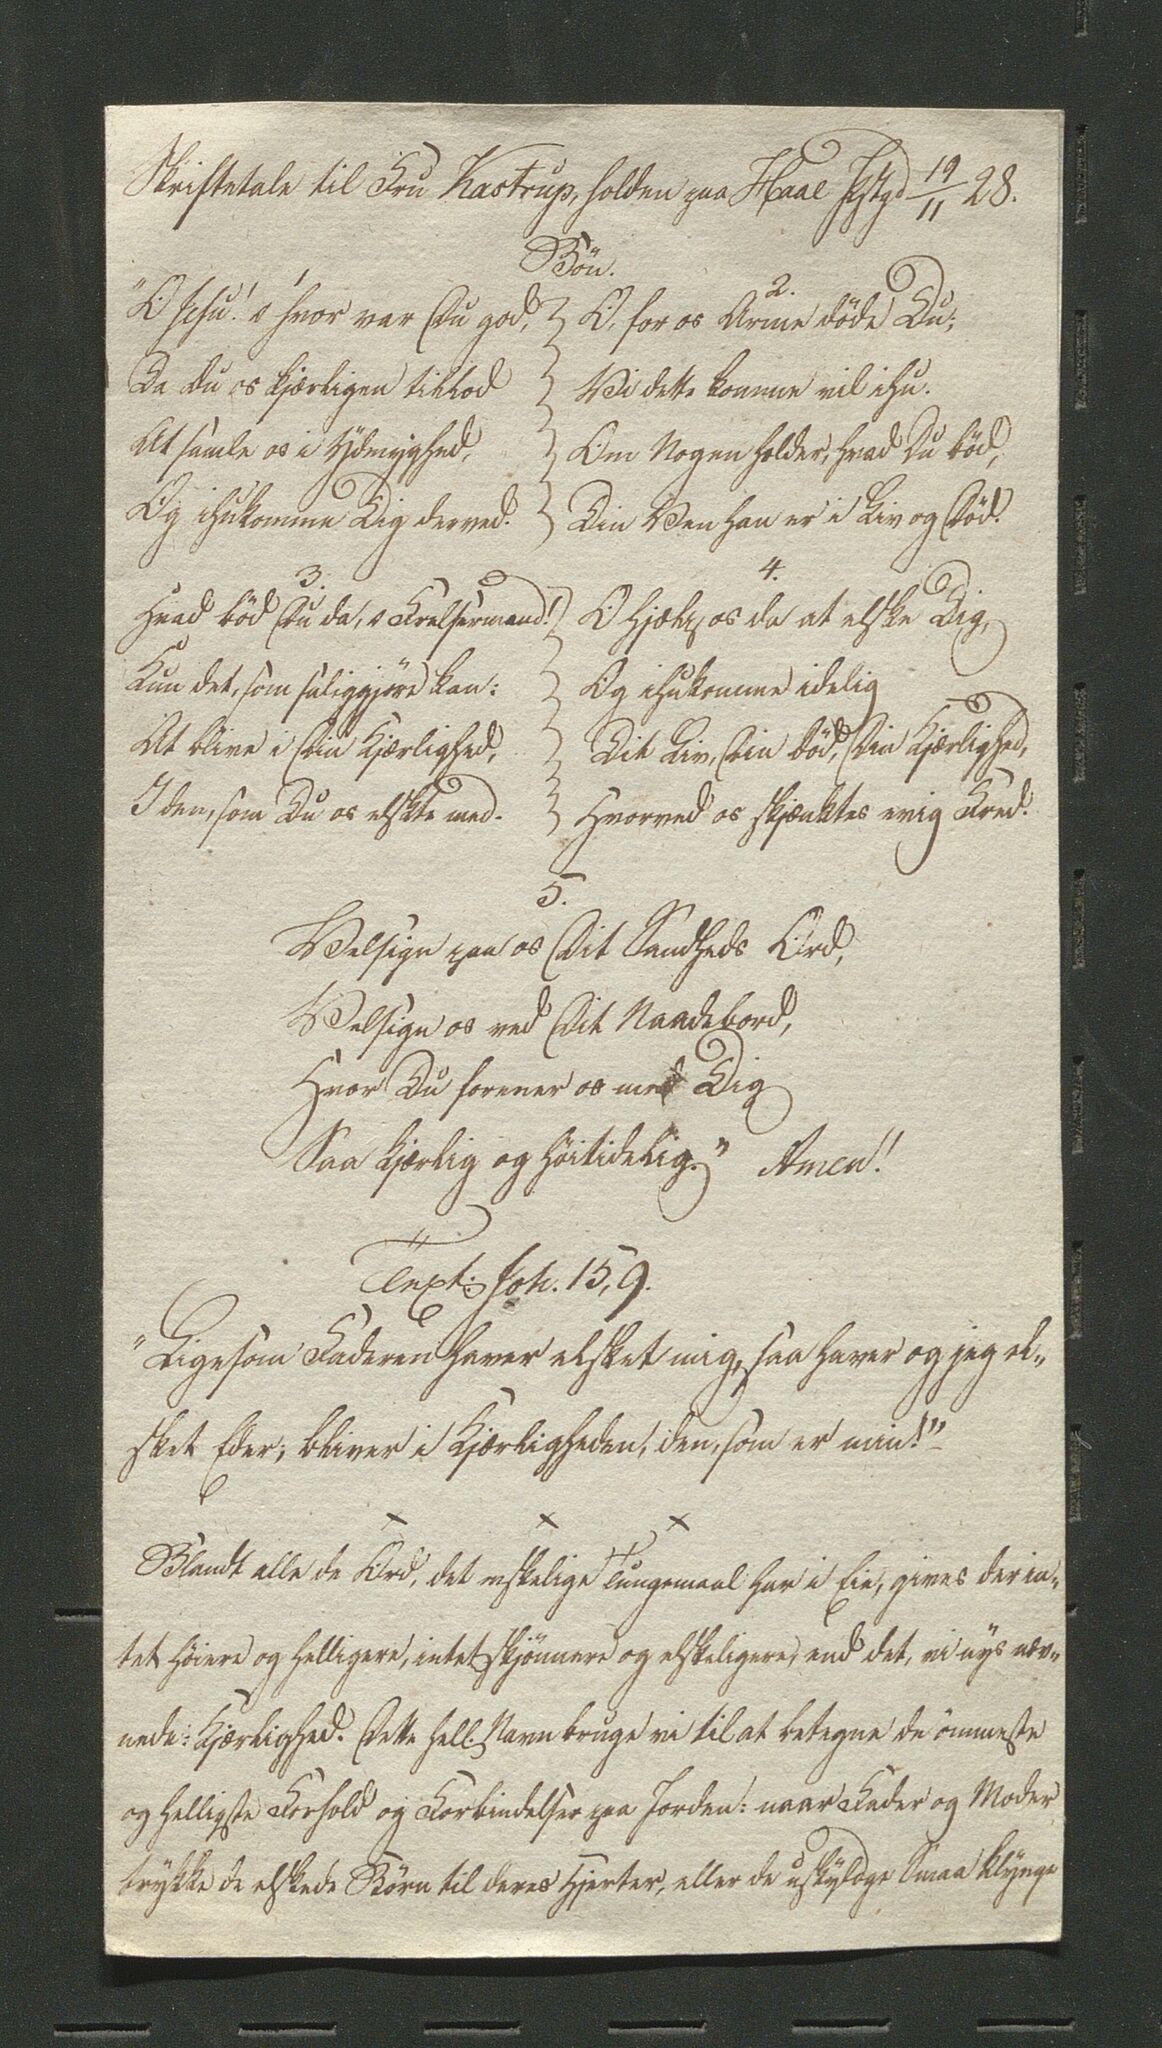 Skriftetale til Fru Kastrup, holden paa Haae Pstgd 19/11 28.
Bön.
1
"O Jesu! o hvor var Du god,
Da Du os kjærligen tillod
At samle os i Ydmyghed,
Og ihukomme Dig derved.
2.
O, for os Arme döde Du;
Vi dette komme vil ihu.
Om Nogen holder, hvad Du bød,
Din Ven han er i Liv og Död.
3.
Hvad bød Du da, o Frelsermand!
Kun det, som saliggjøre kan:
At blive i Din Kjærlighed,
I den, som Du os elskte med.
4.
O hjælp os da at elske Dig,
Og ihukomme idelig
Dit Liv, Din Død, Din Kjærlighed,
Hvorved os skjænktes evig Fred.
5.
Velsign paa os Dit Sandheds Ord,
Velsign os ved Dit Naadebord,
Hvor Du forener os med Dig
Saa kjærlig og höitidelig." Amen!
Text: Joh. 15, 9.
"Ligesom Faderen haver elsket mig, saa haver og jeg el-
sket Eder; bliver i Kjærligheden, den, som er min!"
x x x
Blandt alle de Ord, det mskelige Tungemaal har i Eie, gives der in-
tet høiere og helligere, intet skjönnere og elskeligere, end det, vi nys næv-
nede: Kjærlighed. Dette hell. Navn bruge vi til at betegne de ömmeste
og helligste Forhold og Forbindelser paa Jorden: naar Fader og Moder
trykke de elskede Börn til deres Hjerter, eller de uskyldige Smaa klynge